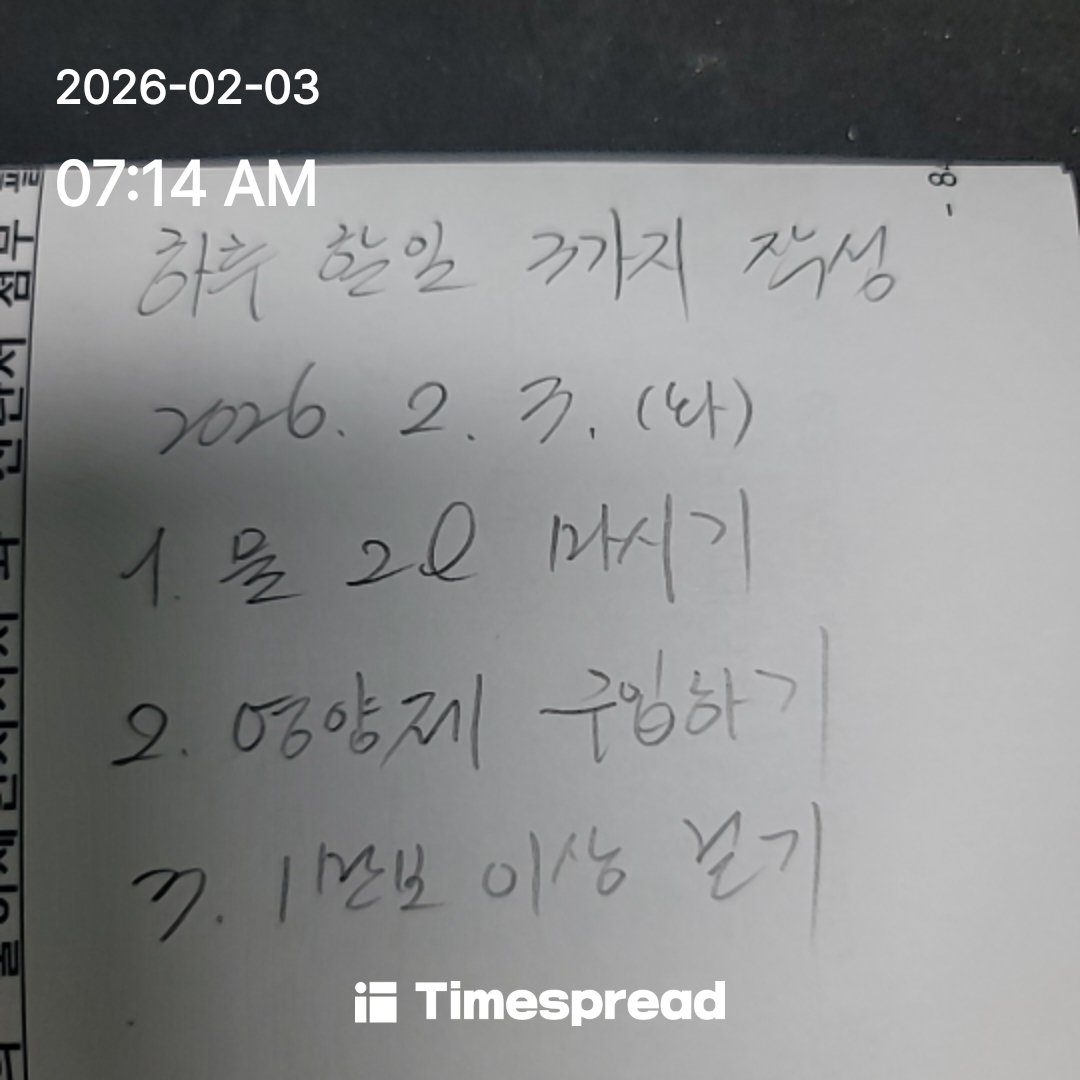 2026-02-03
07:14 AM
- 8
하루 할일 3가지 작성
2026. 2. 3. (화)
1. 물 2ℓ 마시기
2. 영양제 구입하기
3. 1만보 이상 걷기
Timespread